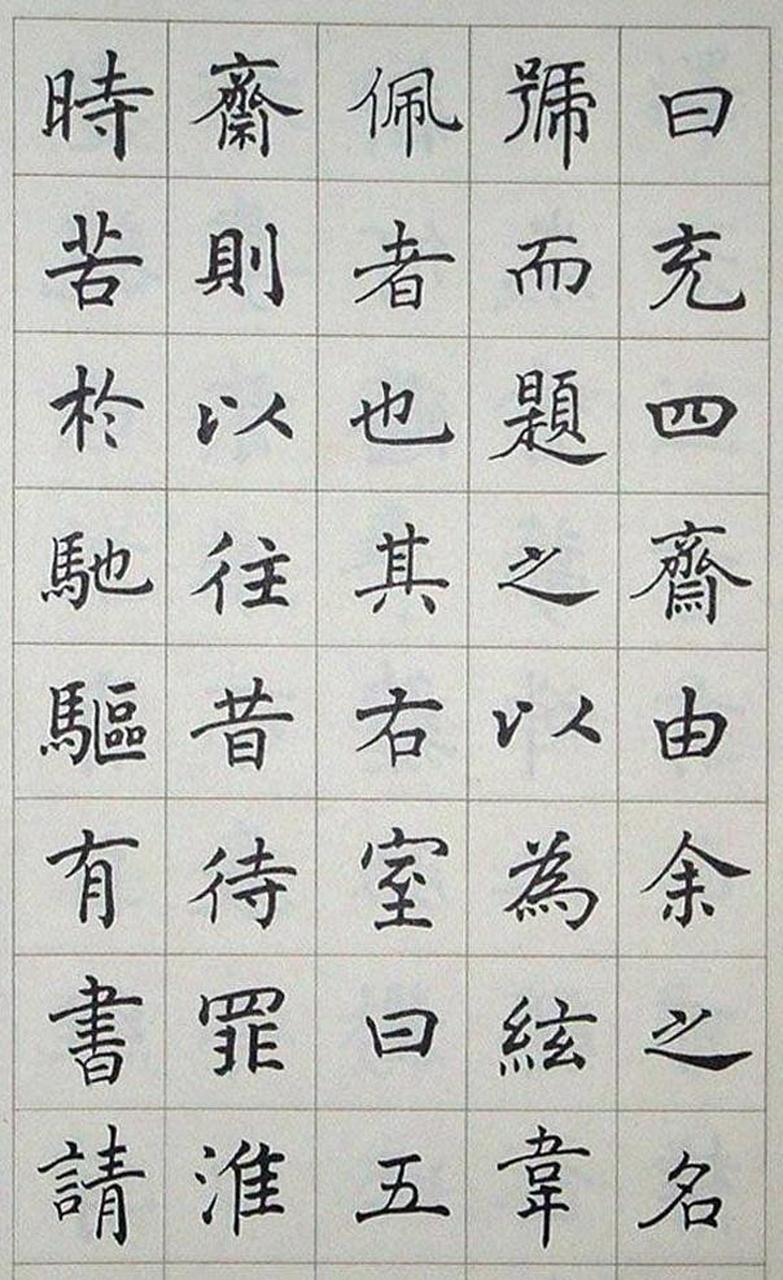 曰充四齋由余之名
號而題之以為絃韋
佩者也其右室曰五
齋則以往昔待罪淮
時苦於馳驅有書請